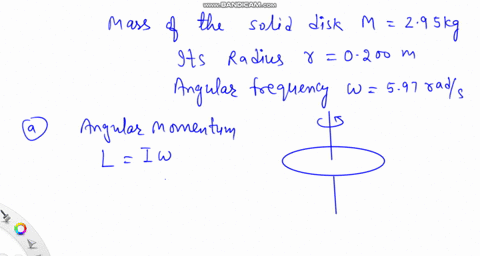 www.BANDICAM.com
Mass of the solid disk M = 2.95kg
Its Radius r = 0.200 m
Angular frequency ω = 5.97 rad/s
(a) Angular Momentum
L = Iω